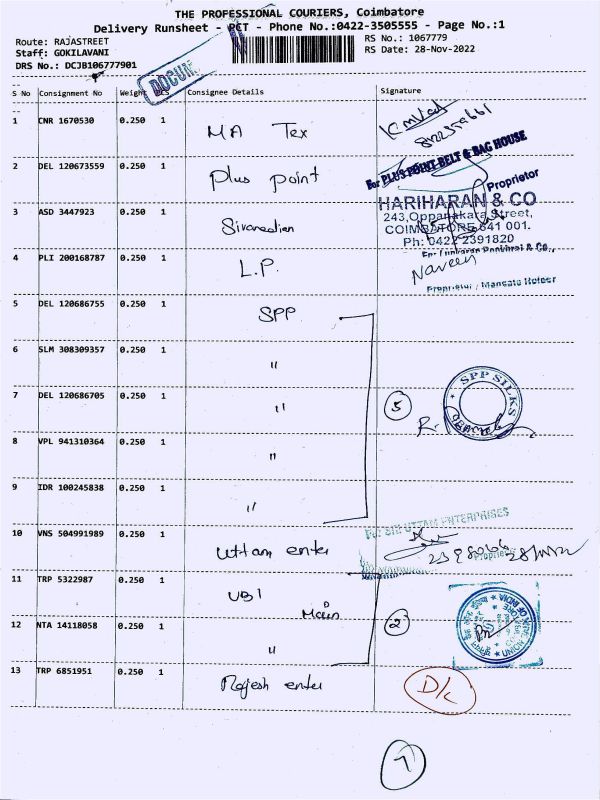 THE PROFESSIONAL COURIERS, Coimbatore
Delivery Runsheet - PCT - Phone No.:0422-3505555 - Page No.:1
Route: RAJASTREET
RS No.: 1067779
Staff: GOKILAVANI
RS Date: 28-Nov-2022
DRS No.: DCJB106777901
DOCUM
S No Consignment No Weight PCS Consignee Details Signature
1 CNR 1670530 0.250 1 MA Tex
2 DEL 120673559 0.250 1 Plus point
For PLUS POINT BELT & BAG HOUSE
Proprietor
3 ASD 3447923 0.250 1
HARIHARAN & CO
243,Oppanakara Street,
COIMBATORE 641 001.
Ph: 0422-2391820
4 PLI 200168787 0.250 1 L.P.
Naveen
5 DEL 120686755 0.250 1 SPP
6 SLM 308309357 0.250 1 "
7 DEL 120686705 0.250 1 " 5
SPP SILKS
R.
8 VPL 941310364 0.250 1 "
9 IDR 100245838 0.250 1 "
For SRI UTTAM ENTERPRISES
10 VNS 504991989 0.250 1 Uttam enter
Proprietor
11 TRP 5322987 0.250 1 UBI
Main
12 NTA 14118058 0.250 1 " 2
UNION BANK OF INDIA
13 TRP 6851951 0.250 1 Rajesh enter D/L
7